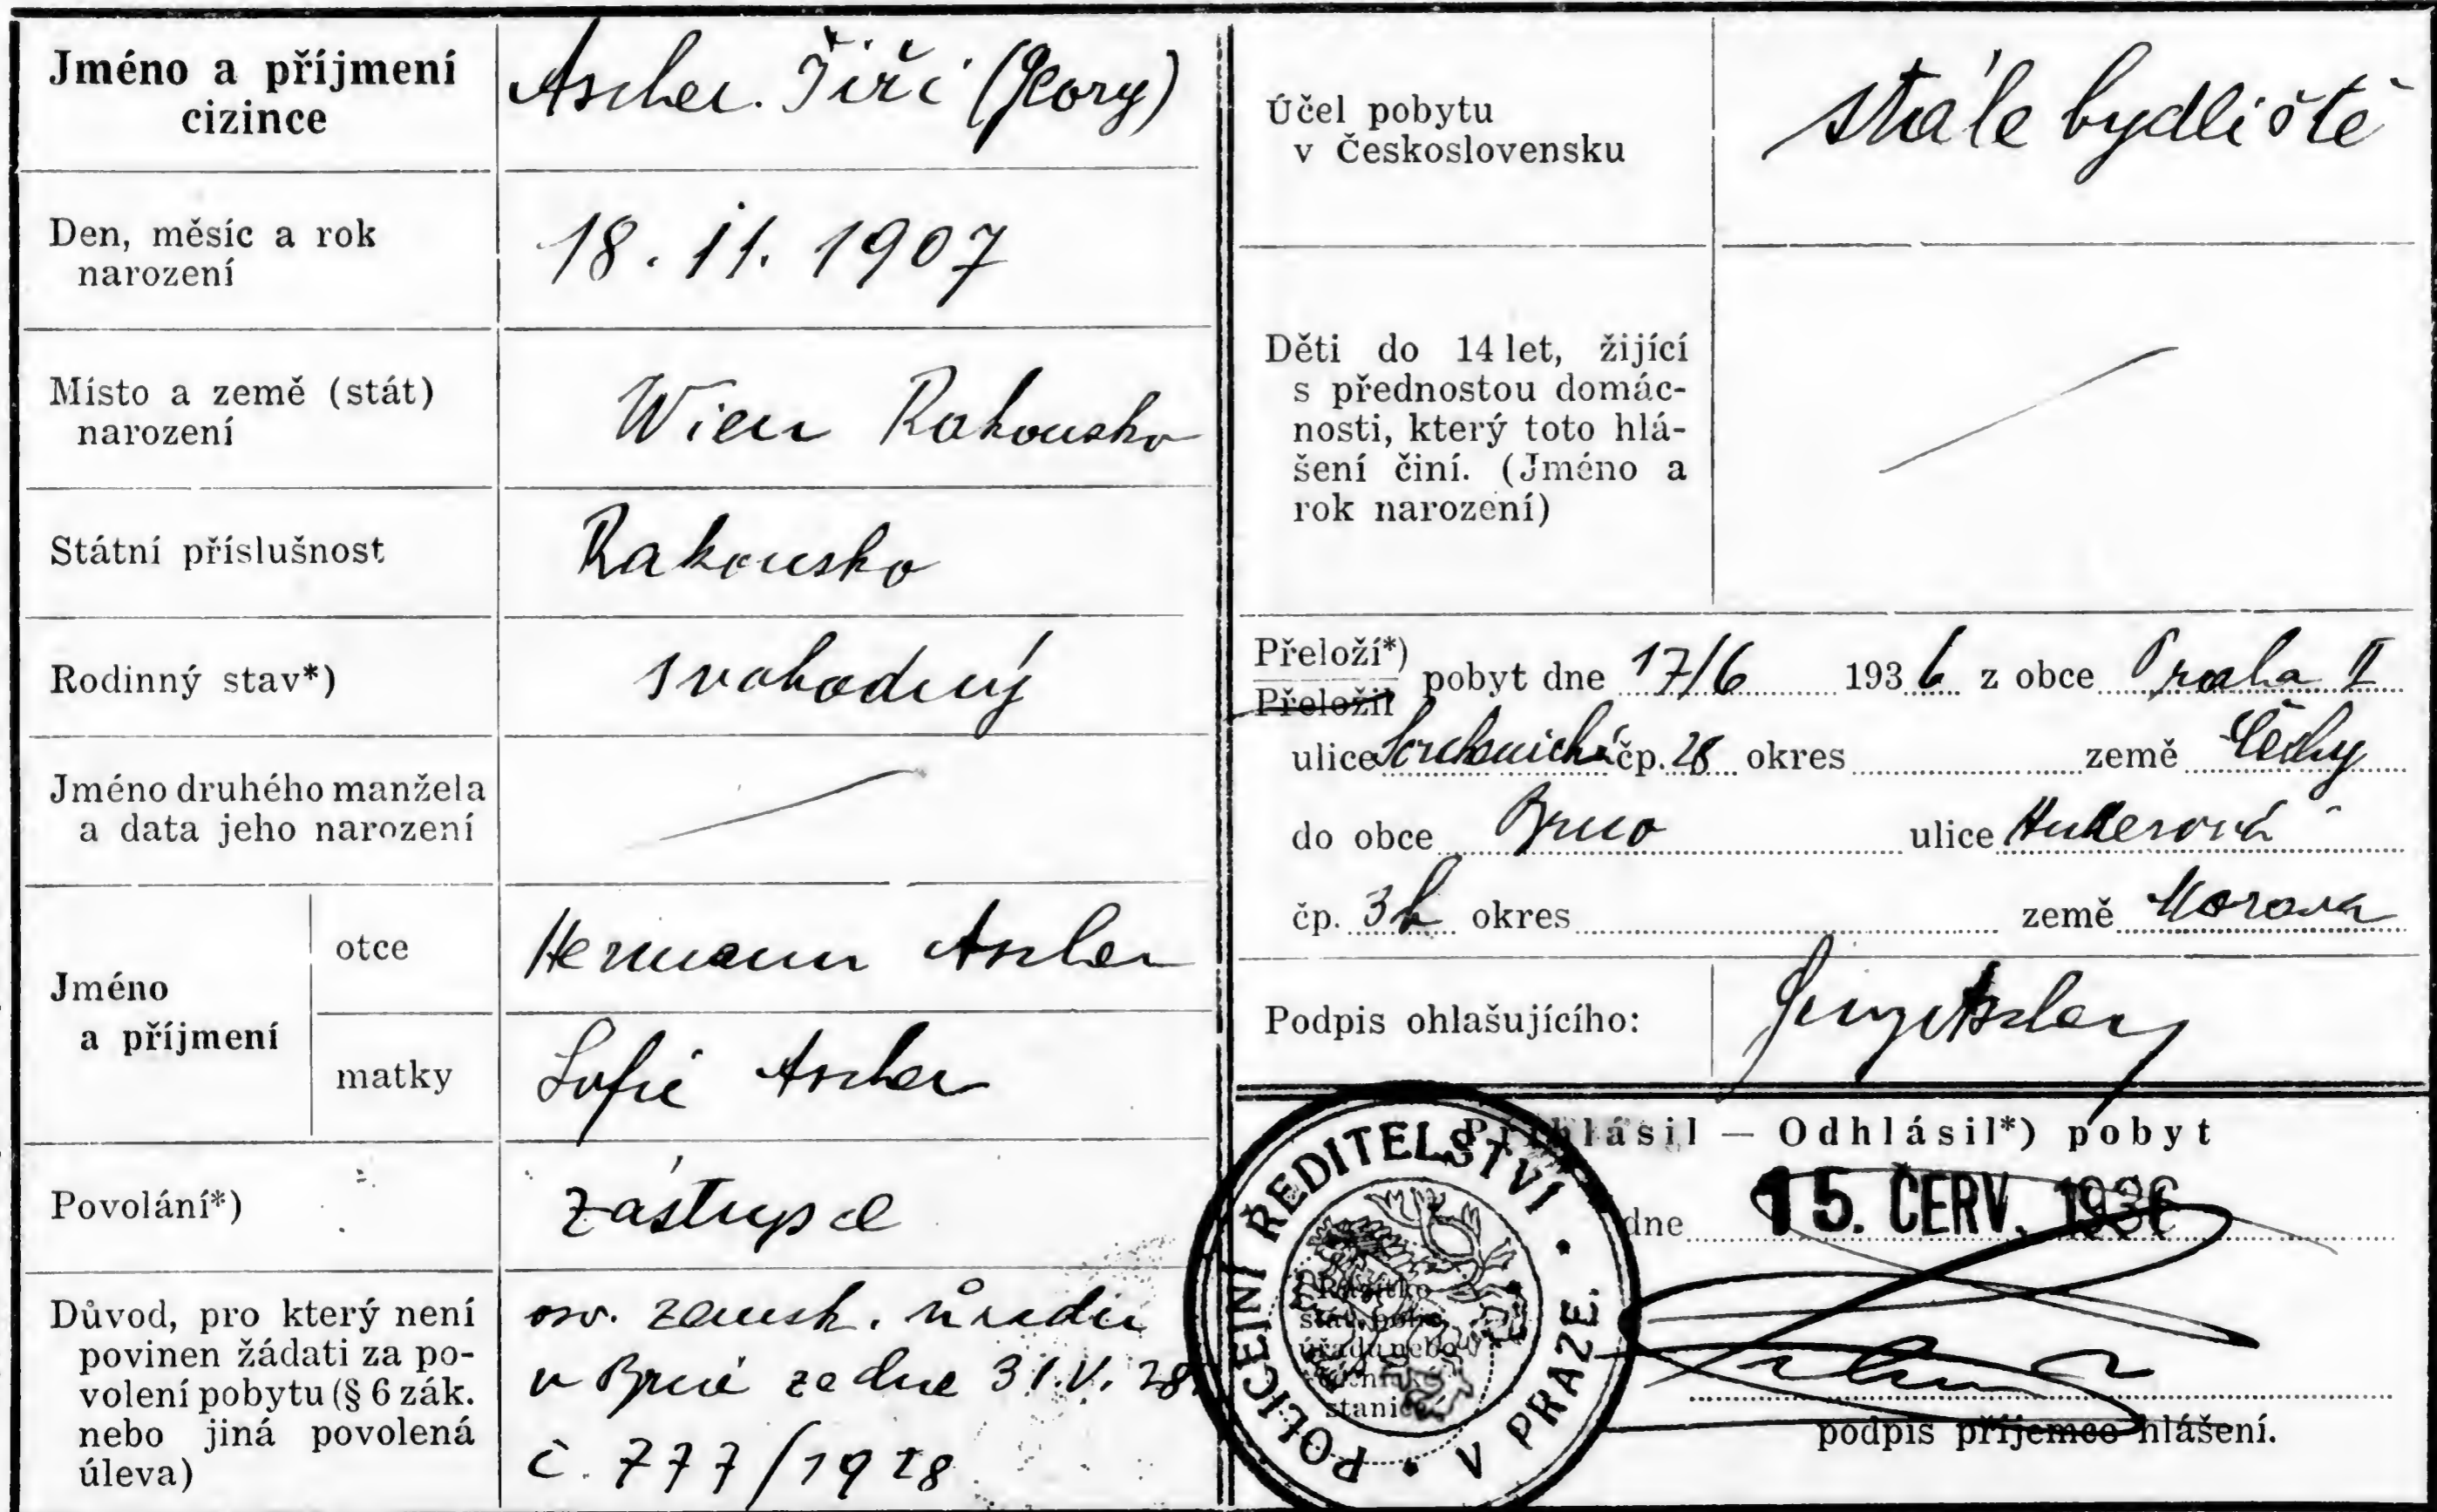 Jméno a příjmení
cizince
Ascher Jiří (Georg)
Den, měsíc a rok
narození
18. 11. 1907
Místo a země (stát)
narození
Wien Rakousko
Státní příslušnost
Rakousko
Rodinný stav*)
svobodný
Jméno druhého manžela
a data jeho narození
Jméno
a příjmení
otce
Hermann Ascher
matky
Sofie Ascher
Povolání*)
zástupce
Důvod, pro který není
povinen žádati za po-
volení pobytu (§ 6 zák.
nebo jiná povolená
úleva)
osv. zemsk. úřadu
v Brně ze dne 31.V. 28
č. 777/1928
Účel pobytu
v Československu
stálé bydliště
Děti do 14 let, žijící
s přednostou domác-
nosti, který toto hlá-
šení činí. (Jméno a
rok narození)
Přeloží*)
Přeložil
pobyt dne 17/6 1936 z obce Praha II
ulice čp. 28 okres země Čechy
do obce Brno ulice
čp. okres země Morava
Podpis ohlašujícího:
Přihlásil — Odhlásil*) pobyt
dne 15. ČERV. 1936
POLICEJNÍ ŘEDITELSTVÍ • V PRAZE. •
Razítko
stát. polic.
úřadu nebo
stanice
podpis příjemce hlášení.